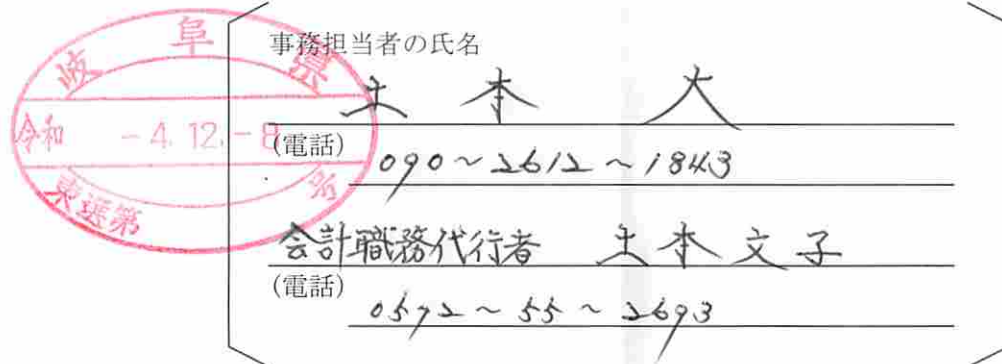 岐阜県
令和 -4.12.-8
東選第 号
事務担当者の氏名
土本 大
(電話)
090~2612~1843
会計職務代行者 土本文子
(電話)
0572~55~2693